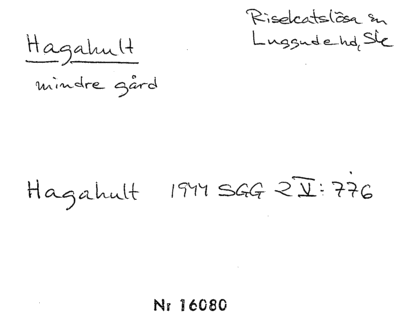 Hagahult
mindre gård
Risekatslösa sn
Luggude hd, Sk
Hagahult 1944 SGG 2 V: 776
Nr 16080